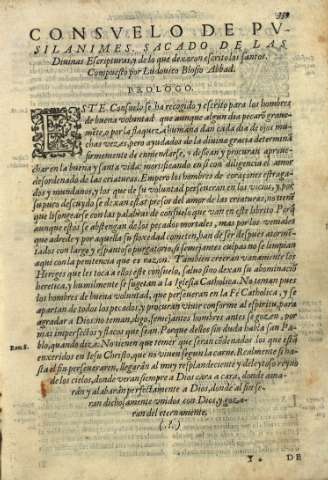 CONSVELO DE PV-
SILANIMES, SACADO DE LAS
Diuinas Escripturas, y de lo que dexaron escrito los santos.
Compuesto por Ludouico Blosio Abbad.
PROLOGO.
ESTE Consuelo se ha recogido, y escrito para los hombres
de buena voluntad que aunque algun dia pecarõ graue
mẽte, o por la flaqueza humana dan cada dia de ojos mu-
chas vezes, pero ayudados de la diuina gracia determinã
firmemente de enmendarse, y dessean y procuran aproue-
char en la buena y santa vida: mortificando en si con diligencia el amor
desordenado de las criaturas. Empero los hombres de coraçones estraga-
dos y mundanos, y los que de su voluntad perseueran en los vicios, y por
su puro descuydo se dexan estar presos del amor de las criaturas, no tienẽ
que lisongearse con las palabras de consuelo que van en este librito. Porq̃
aunque estos se abstengan de los pecados mortales, mas por los veniales
que adrede y por aquella su floxedad cometen, han de ser despues atormẽ-
tados con largo y espantoso purgatorio, si semejantes culpas no se limpian
aqui con la penitencia que es razon. Tambien creeran vanamente los
Hereges que les toca a ellos este consuelo, saluo sino dexan su abominaciõ
heretica, y humilmente se sugetan a la Iglesia Catholica. No teman pues
los hombres de buena voluntad, que perseueran en la Fè Catholica, y se
apartan de todos los pecados, y procuran viuir conforme al espiritu, para
agradar a Dios: no teman, digo, semejantes hombres antes se gozen, por
mas imperfectos y flacos que sean. Porque dellos sin duda habla san Pa-
Rom. 8. blo, quando dize: No tienen que temer que seran cõdenados los que estã
enxeridos en Iesu Christo, que no viuen segun la carne. Realmente si ha-
sta el fin perseueraren, llegarán al muy resplandeciente y deleytoso reyno
de los cielos, donde veran siempre a Dios cara a cara, donde ama-
rán y alabarán perfectamente a Dios, donde al fin se-
ran dichosamente vnidos con Dios, y goza-
ran del eternamente.
(.?.)
Y. DE